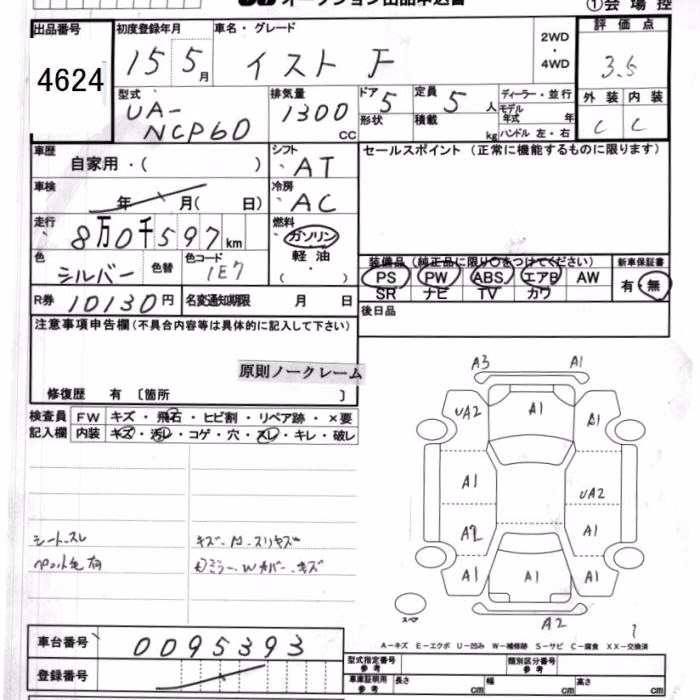 オークション出品申込書 ①会場控
出品番号 4624
初度登録年月 15 5月
車名・グレード イスト F
2WD・4WD
評価点 3.5
外装 C 内装 C
型式 UA-NCP60
排気量 1300 CC
ドア 5 定員 5人
形状 積載 kg
ディーラー・並行
モデル年式 年
ハンドル 左・右
車歴 自家用・( )
シフト AT
セールスポイント (正常に機能するものに限ります)
車検 年 月( 日)
冷房 AC
走行 8万0千597km
燃料 ガソリン 軽油 ( )
色 シルバー 色替 色コード 1E7
装備品 (純正品に限り○をつけてください) 新車保証書
PS PW ABS エアB AW 有・無
SR ナビ TV カワ
R券 10130円 名変通知期限 月 日
後日品
注意事項申告欄 (不具合内容等は具体的に記入して下さい)
原則ノークレーム
修復歴 有 〔箇所 〕
検査員 FW キズ・飛石・ヒビ割・リペア跡・×要
記入欄 内装 キズ・汚レ・コゲ・穴・スレ・キレ・破レ
シートスレ
ペット毛有
A3 A1
UA2 A1 A1
A1 UA2
A2 A1
A1 A1 A1
スペア A2
A-キズ E-エクボ U-凹み W-補修跡 S-サビ C-腐食 XX-交換済
車台番号 0095393
登録番号
型式指定番号 参考 類別区分番号 参考
車庫証明用 参考 長さ cm 幅 cm 高さ cm